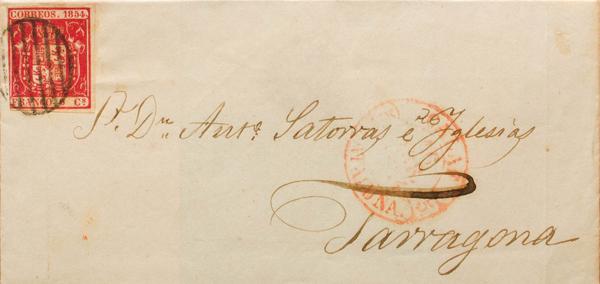 CORREOS. 1854.
FRANCO 6 Cs
26
S. Dn. Anto. Satorras e Yglesias
Tarragona